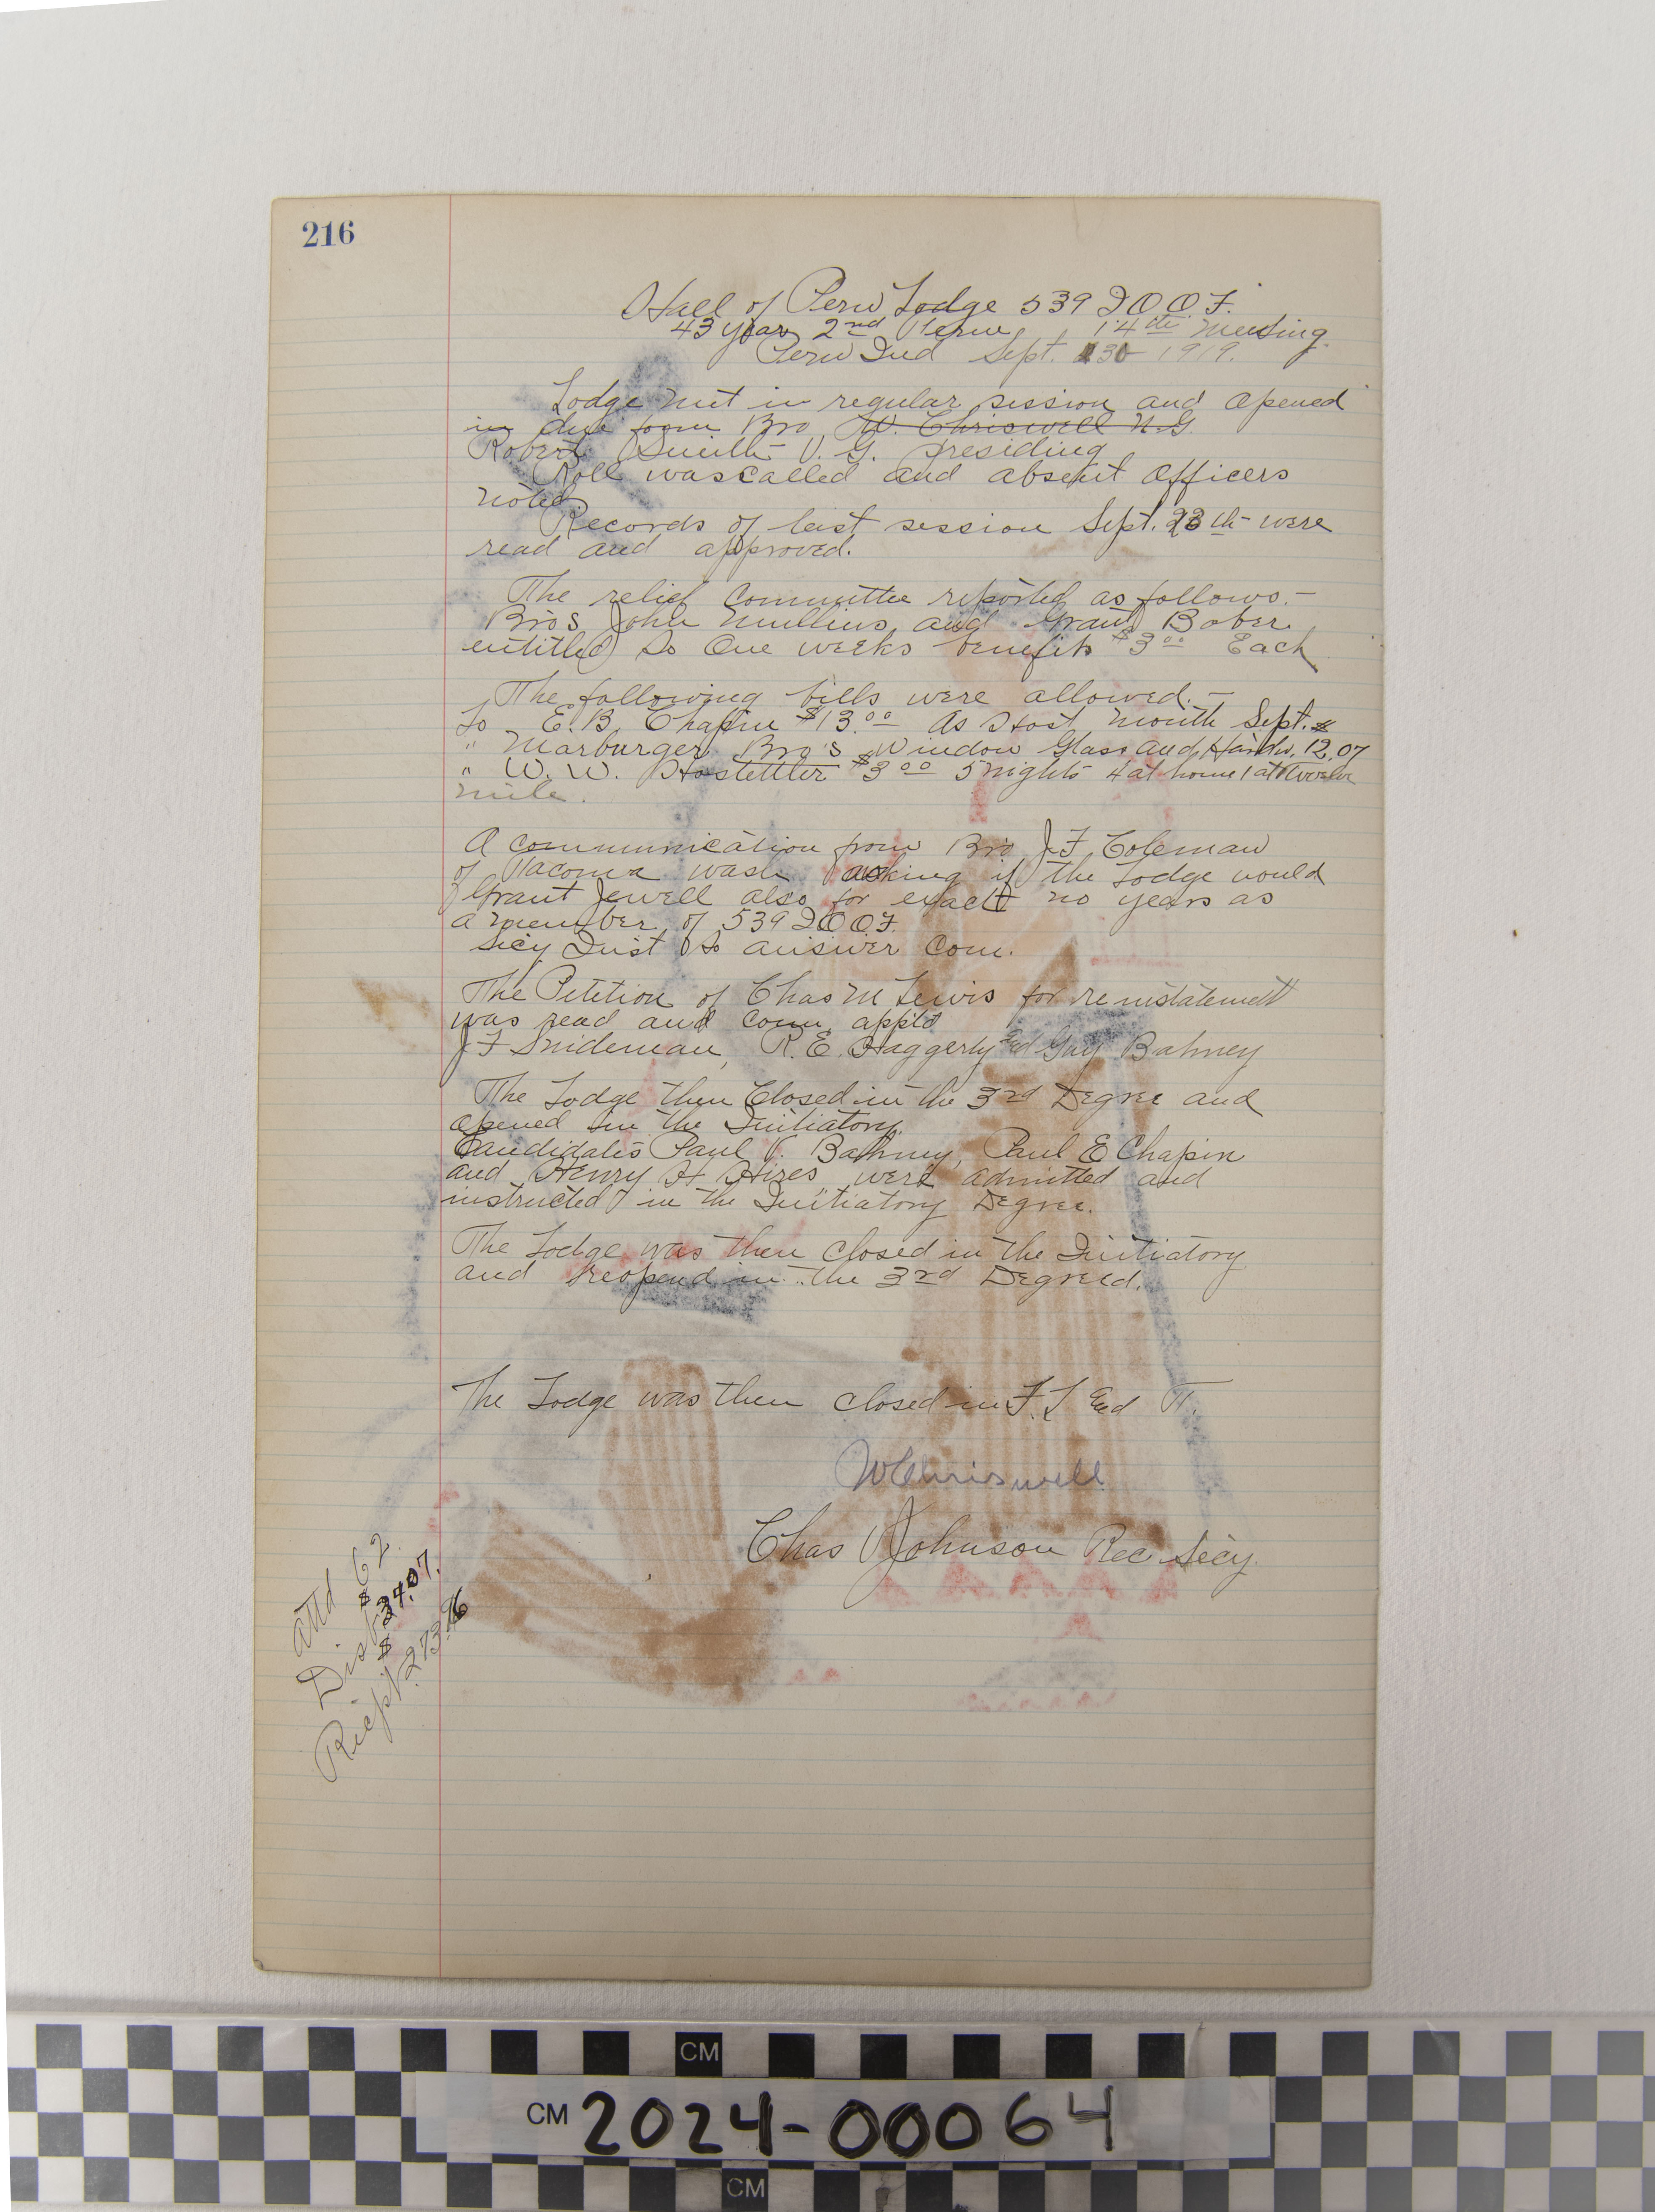 216
Hall of Peru Lodge 539 I O O F.
43 year 2nd Term 14th Meeting.
Peru Ind Sept. 30 1919.
Lodge met in regular session and opened
in due form Bro W. Chriswell N.G
Robert Smith V. G. presiding
Roll was called and absent officers
noted.
Records of last session Sept. 23th were
read and approved.
The relief Committee reported as follows.-
Bros John Mullins, and Grant Bober
entitled to One weeks benefits $3.00 Each
The following bills were allowed.-
To E.B. Chapin $13.00 As Host month Sept.
" Marburger Bro's Window Glass and Hardw. 12.07
" W. W. Hostettler $3.00 5 nights 4 at home 1 at Twelve
mile.
A communication from Bro J.F. Coleman
of Tacoma Wash asking if the Lodge would
Grant Jewell also for exact no years as
a member of 539 I O O F.
Secy Inst to answer Com.
The Petition of Chas M Lewis for reinstatement
was read and com. app'td
J F Snideman, R.E. Haggerty and Guy Bahney
The Lodge then Closed in the 3rd Degree and
opened in the Initiatory.
Candidates Paul V. Bahney, Paul E Chapin
and Henry H Hires were admitted and
instructed in the Initiatory Degree.
The Lodge was then closed in the Initiatory
and reopend in the 3rd Degreed.
The Lodge was then closed in F. L and T.
W Chriswell
Chas V Johnson Rec Secy.
Attd 62.
Disb $34.07.
Recpt. $273.96
CM
CM 2024-00064
CM